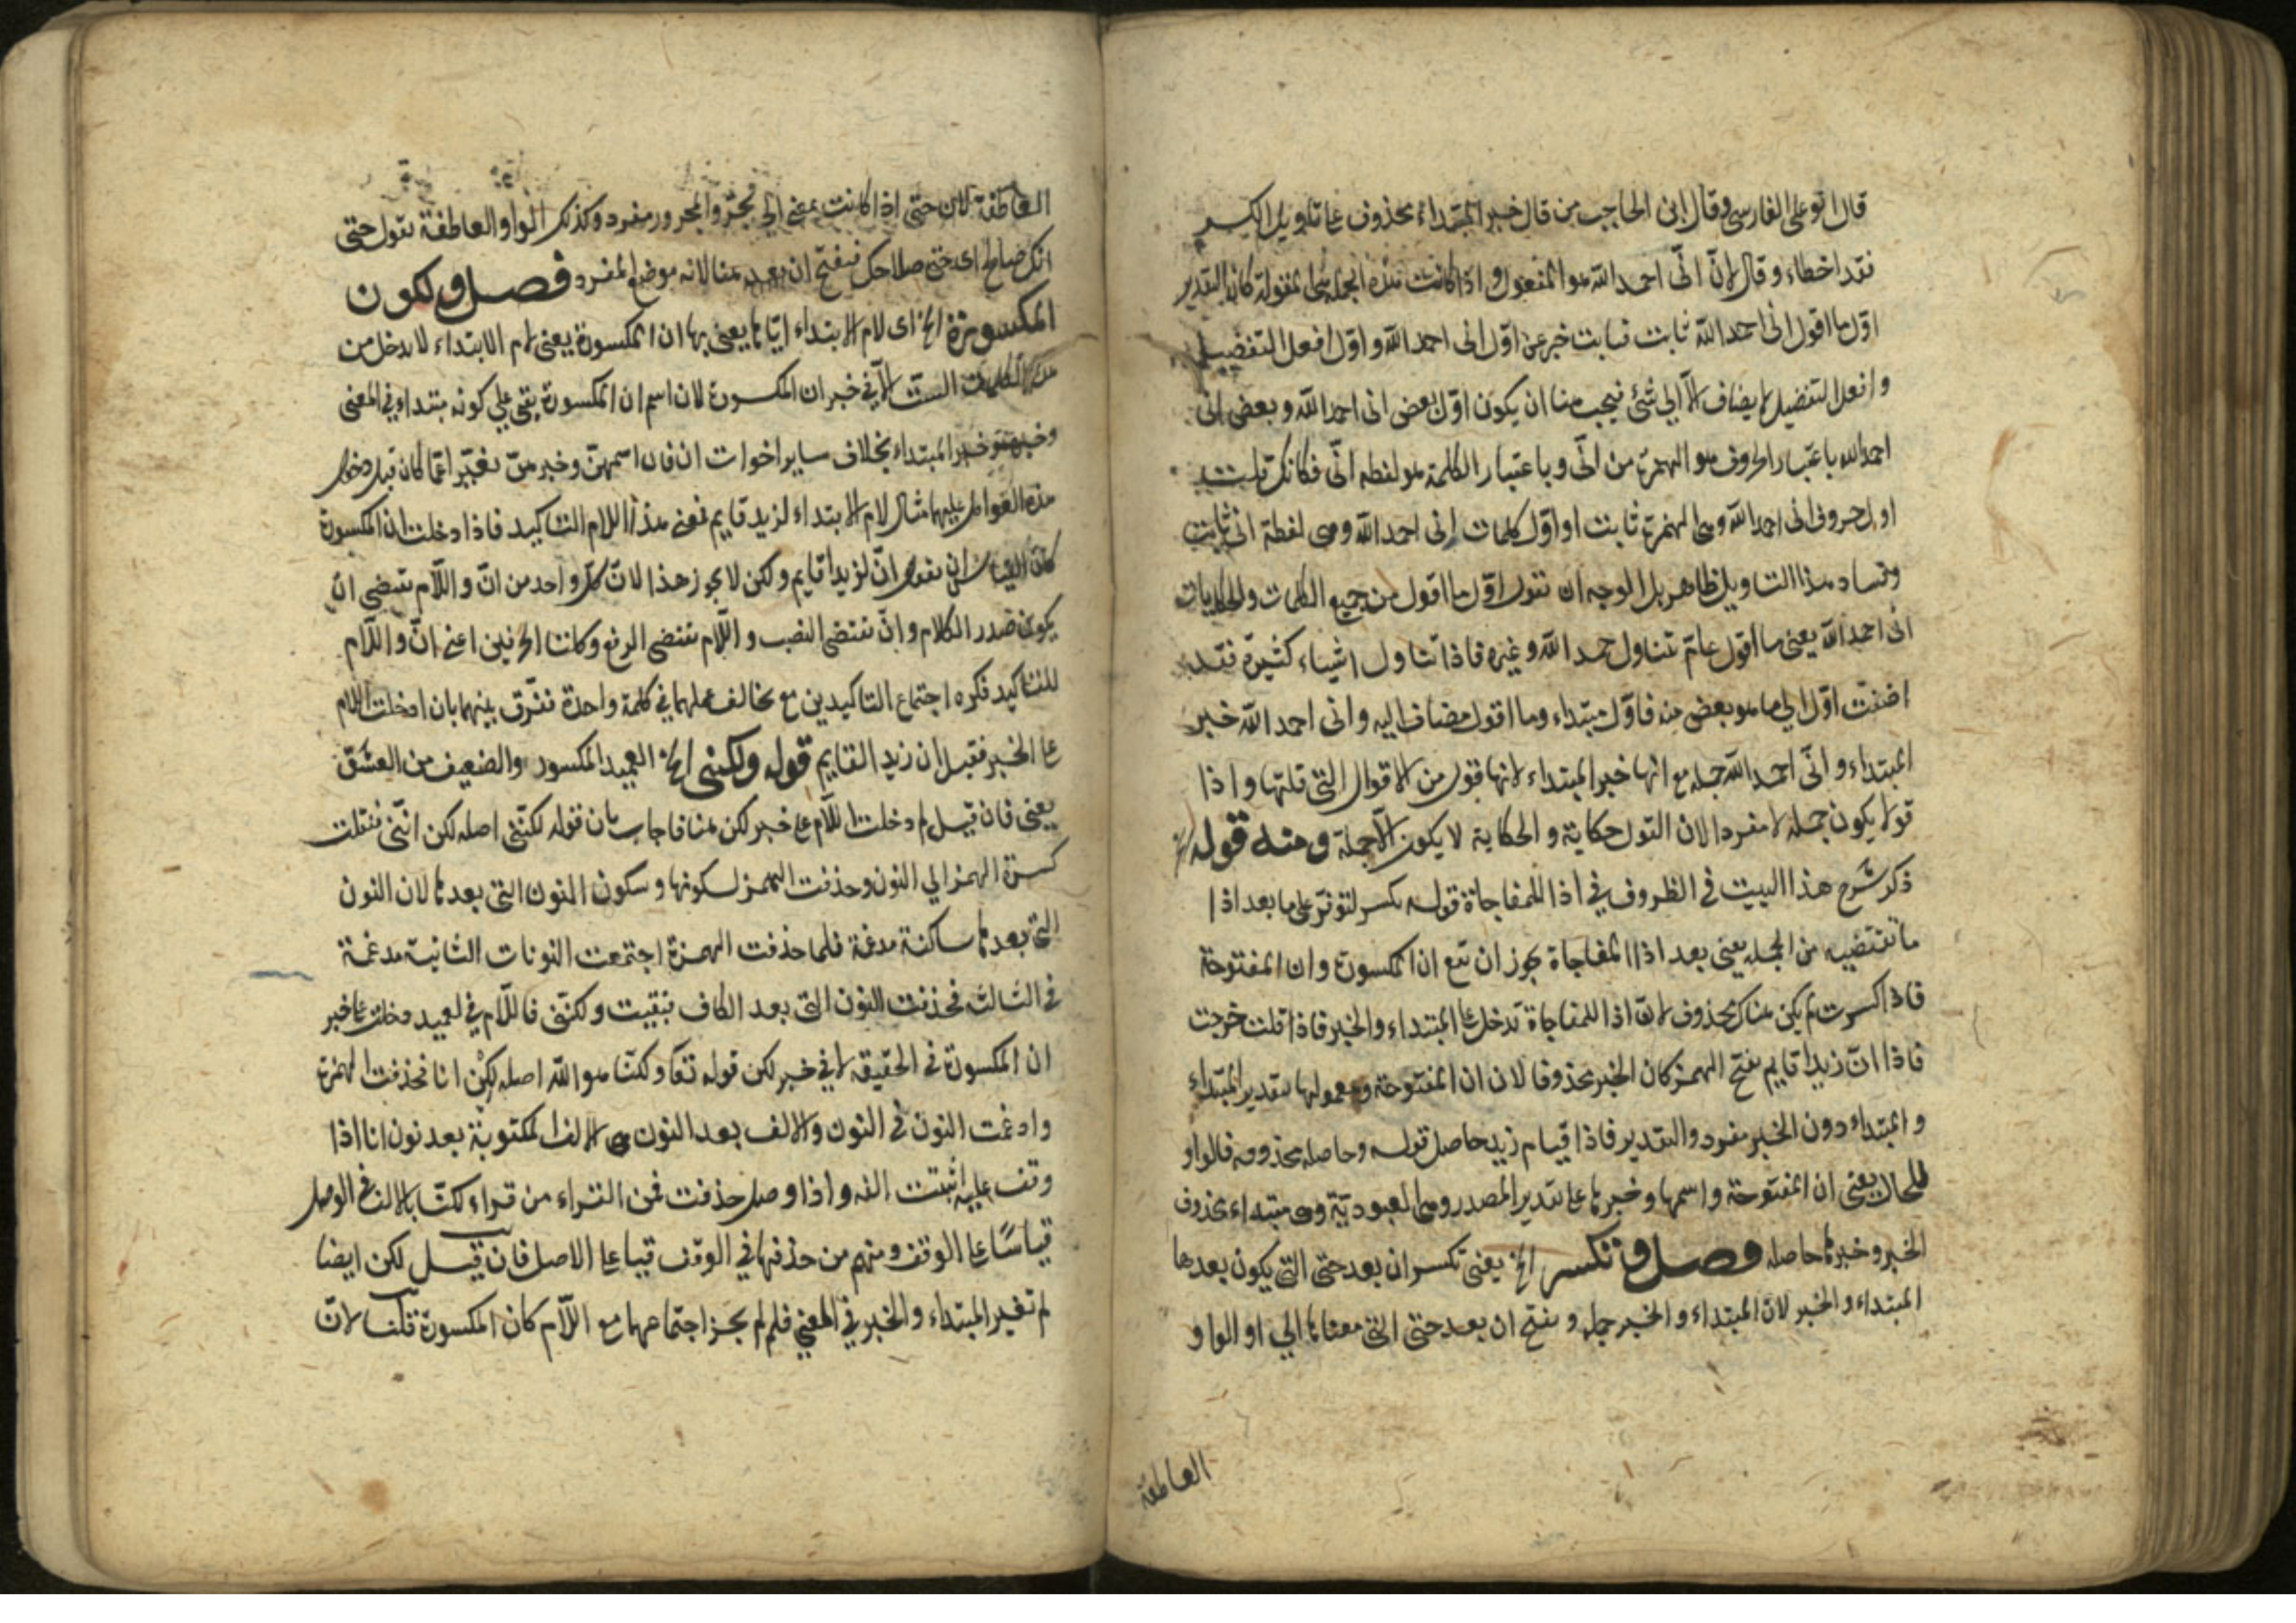 قال ابو علي الفارسي وقال ابن الحاجب من قال خبر المبتداء محذوف على تاويل الكسر
فقد اخطاء وقال لان انّى احمد الله هو المفعول واذا كانت هذه الجملة هى المقولة كان التقدير
اوّل ما اقول انى احمد الله ثابت فثابت خبر عن اوّل انى احمد الله و اوّل افعل التفضيل
و افعل التفضيل لا يضاف الا الي شئ فيجب هنا ان يكون اوّل بعض انى احمد الله و بعض انى
احمد الله باعتبار الحروف هو الهمزة من انّى و باعتبار الكلمة هو لفظه انّى فكانك قلت
اول حروف انى احمد الله وهى الهمزة ثابت او اوّل كلمات إنى احمد الله وهى لفظة انى ثابت
وفساد هذا التاويل ظاهر بل الوجه ان تقول اوّل ما اقول من جميع الكلمات والحكايات
انّى احمد الله يعنى ما اقول عامّ تتناول حمد الله و غيره فاذا تناول اشياء كثيرة فقد
اضفت اوّل الي ما هو بعض منه فاوّل مبتداء وما اقول مضاف اليه وانى احمد الله خبر
المبتداء و انّى احمد الله جمله مع انها خبر المبتداء لانها قول من الاقوال التي قلتها و اذا
قولا يكون جملة لا مفردا لان القول حكاية و الحكاية لا يكون الا جملة ومنه قوله الخ
ذكر شرح هذا البيت فى الظروف في اذا للمفاجاة قوله تكسر لتوفّر على ما بعد اذا
ما تقتضيه من الجمله يعنى بعد اذا المفاجاة يجوز ان تقع ان المكسورة وان المفتوحة
فاذا كسرت لم يكن هناك محذوف لانّ اذا للمفاجاة تدخل على المبتداء والخبر فاذا قلت خرجت
فاذا انّ زيدا قايم بفتح الهمزة كان الخبر محذوفا لان ان المفتوحة ومعمولها بتقدير المبتداء
و المبتداء دون الخبر مفرد والتقدير فاذا قيام زيد حاصل قوله وحاصله محذوفه فالواو
للحال يعنى ان المفتوحة واسمها وخبرها على تقدير المصدر وهى العبوديّة وهى مبتداء محذوف
الخبر وخبرها حاصله فصل وتكسر الخ يعنى تكسر ان بعد حتى التى يكون بعدها
المبتداء و الخبر لانّ المبتداء و الخبر جملة و بفتح ان بعد حتى التى معناها الي او الواو
العاطفة
العاطفة لان حتى اذا كانت بمعنى الي تجرّ و المجرور مفرد وكذلك الواو العاطفة تقول حتى
انك صالح اى حتى صلاحك فيفتح ان بعد هنا لانه موضع المفرد فصل ولكون
المكسورة الخ اى لام الابتداء اياها يعنى بها ان المكسورة يعنى لام الابتداء لا يدخل من
هذه الكلمات الست الا في خبر ان المكسورة لان اسم ان المكسورة يبقى علي كونه مبتداء في المعنى
وخبره خبر المبتداء بخلاف ساير اخوات ان فان اسمهنّ وخبرهنّ تغيّر عمّا كان قبل دخول
هذه العوامل عليهما مثال لام الابتداء لزيد قايم فمعنى هذا اللام التاكيد فاذا دخلت ان المكسورة
كان القياس ان تقول انّ لزيدا قايم ولكن لا يجوز هذا لانّ كل واحد من انّ و اللّام تقتضي ان
يكون صدر الكلام و انّ تقتضى النصب و اللّام تقتضى الرفع وكانتا الحرفين اعنى انّ و اللّام
للتاكيد فكره اجتماع التاكيدين مع تخالف عملهما في كلمة واحدة ففرّق بينهما بان ادخلت اللام
على الخبر فقيل ان زيد القايم قوله ولكننى الخ العميد المكسور والضعيف من العشق
يعنى فان قيل لم دخلت اللّام على خبر لكن هنا فاجاب بان قوله لكنّنى اصله لكن انّنى فنقلت
كسرة الهمز الي النون وحذفت الهمز لسكونها و سكون النون التى بعدها لان النون
التى بعدها ساكنة مدغمة فلما حذفت الهمزة اجتمعت النونات الثانية مدغمة
فى الثالثه فحذفت النون التى بعد الكاف فبقيت ولكنّنى فاللّام في لعميد دخلت على خبر
ان المكسورة فى الحقيقة لا في خبر لكن قوله تعا و لكنّا هو الله اصله لكنْ انا فحذفت الهمزة
وادغمت النون فى النون والالف بعد النون هى الالف المكتوبة بعد نون انا اذا
وقف عليه اثبتت الفه و اذا وصل حذفت فمن القراء من قراء لكنّا بالالف فى الوصل
قياسًا على الوقف ومنهم من حذفها في الوقف قياسا على الاصل فان قيل لكن ايضا
لم تغير المبتداء والخبر في المعنى فلم لم يجز اجتماعهما مع اللّام كان المكسورة قلنا لانّ